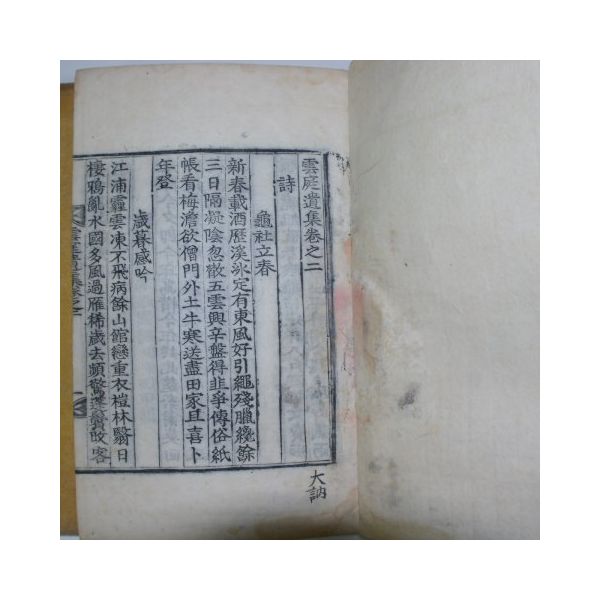 雲庭遺集卷之二
詩
龜社立春
新春載酒歷溪氷定有東風好引繩殘臘纔餘
三日隔凝陰忽散五雲興辛盤得韭爭傳俗紙
帳看梅澹欲僧門外土牛寒送盡田家且喜卜
年登
歲暮感吟
江浦霾雲凍不飛病餘山館戀重衣榿林翳日
棲鴉亂水國多風過雁稀歲去頻驚蓬鬢改客
大訥